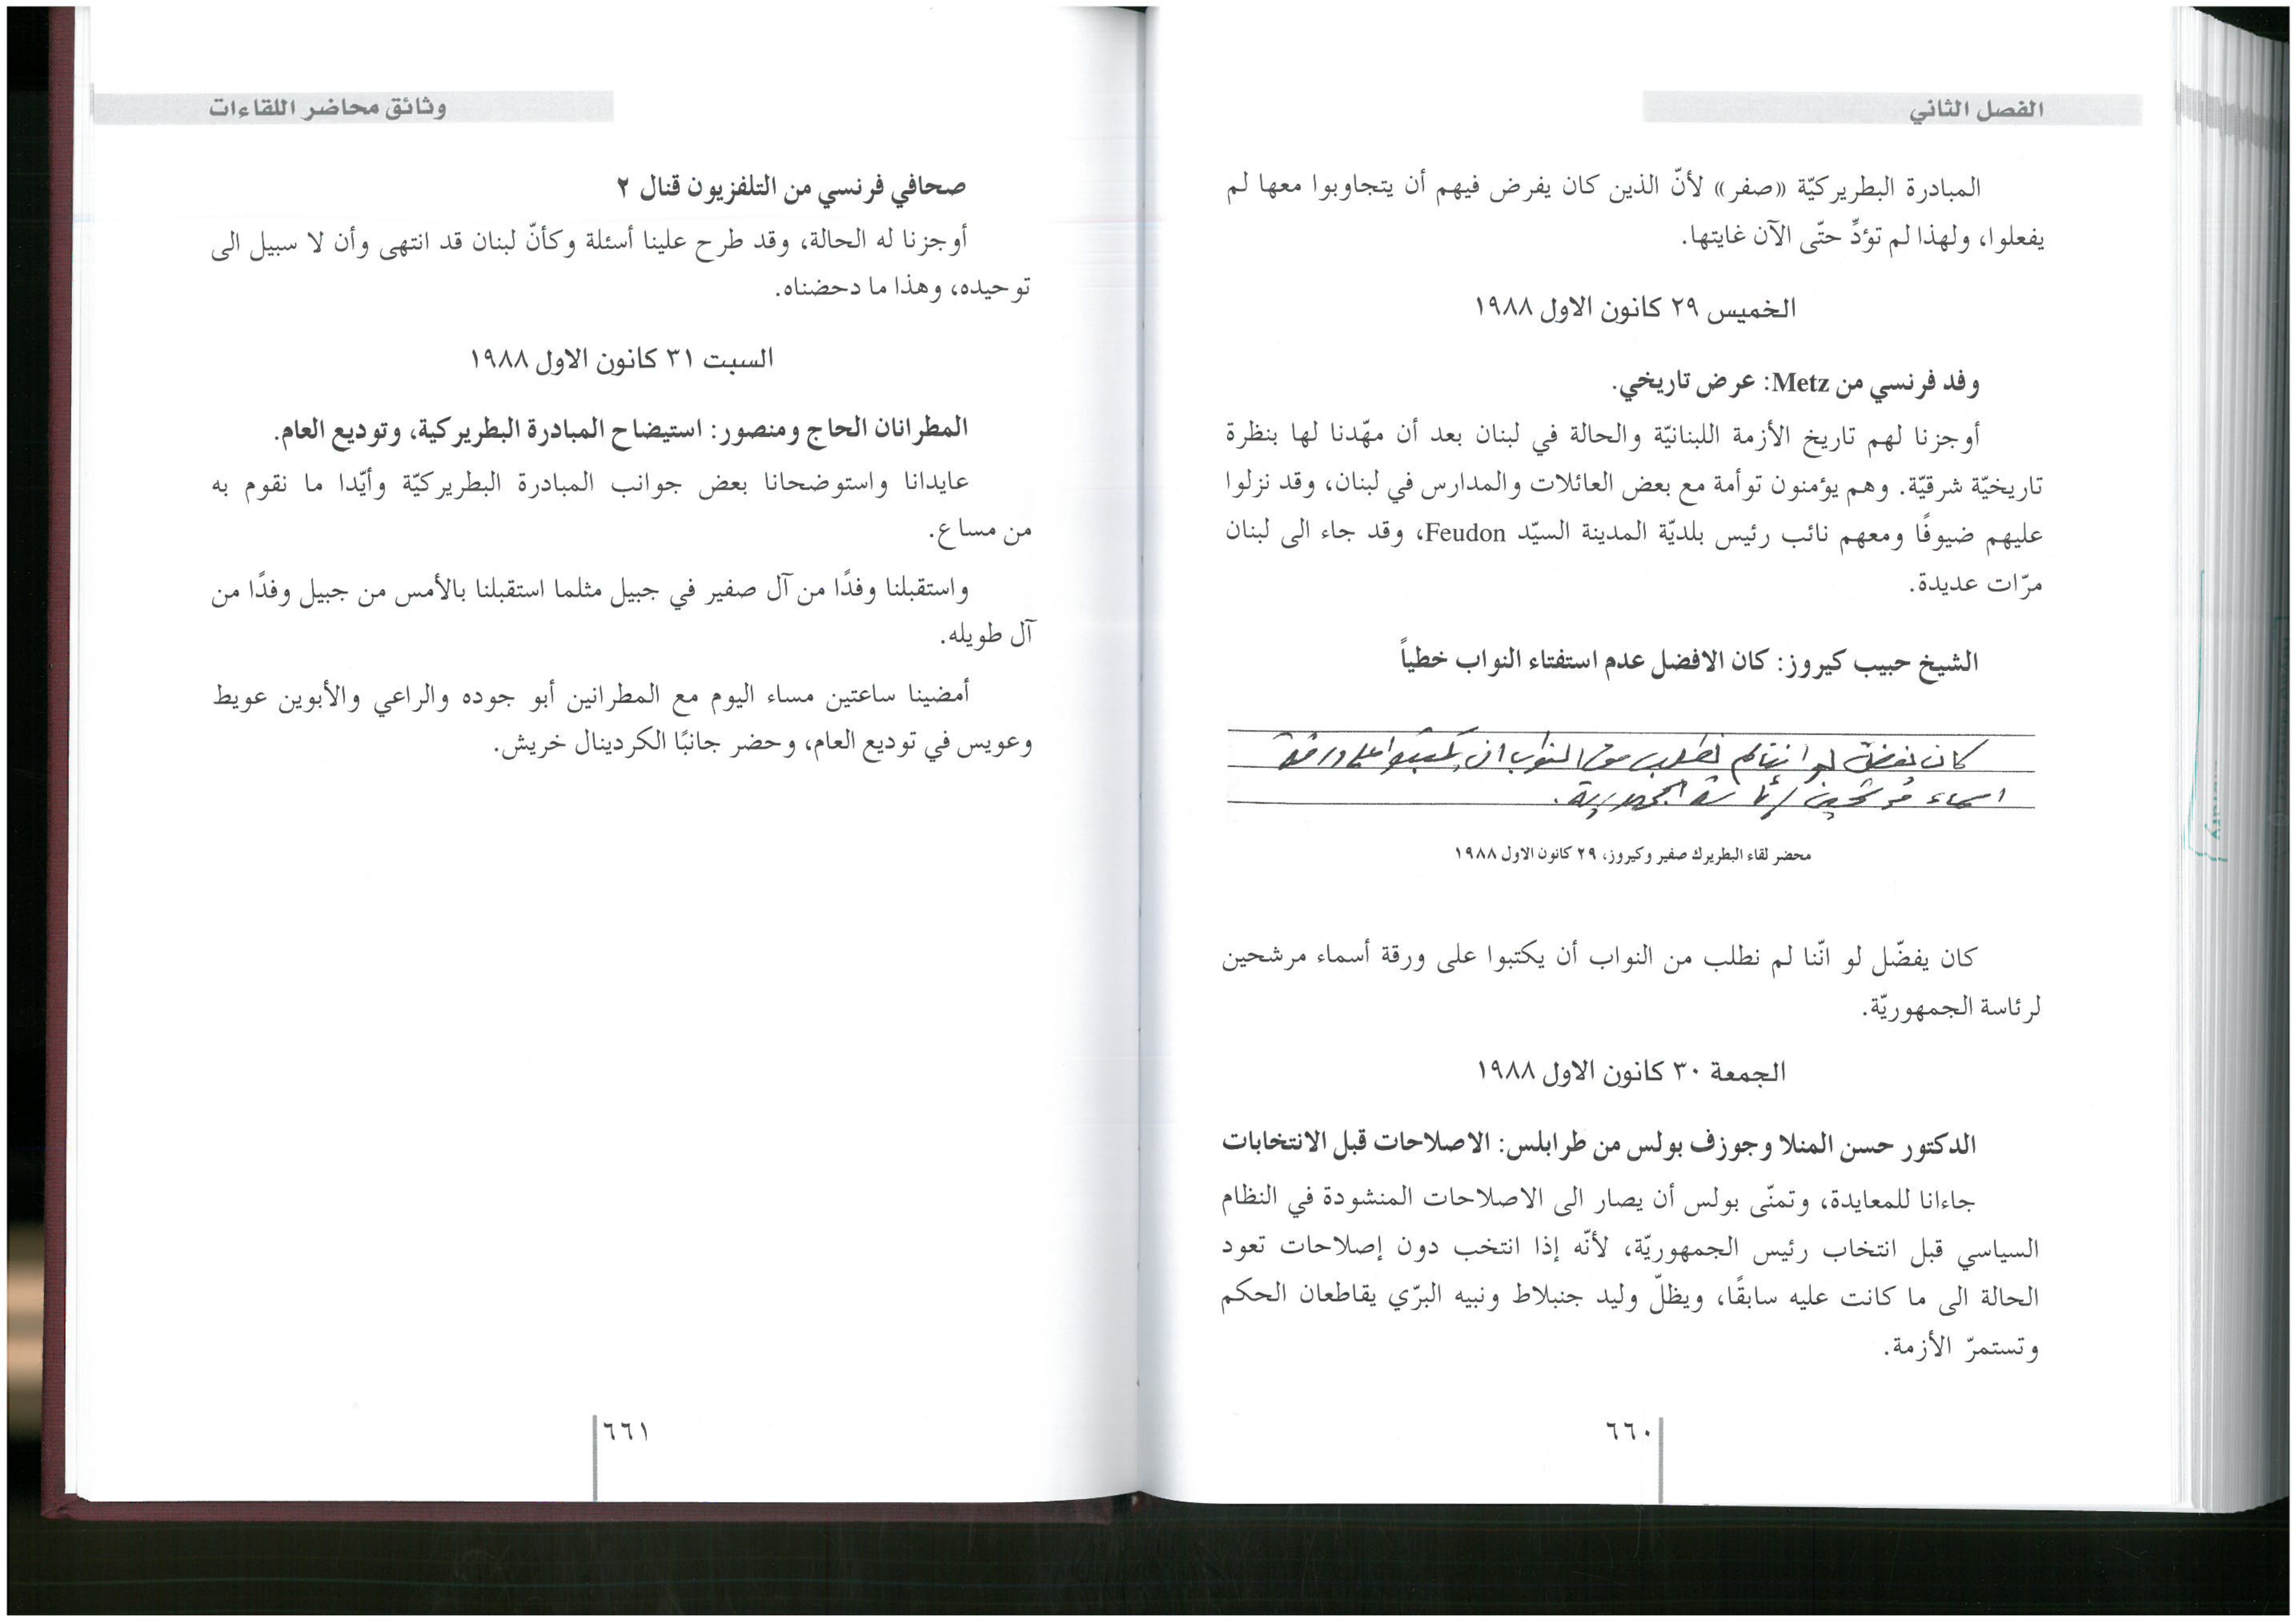 الفصل الثاني
المبادرة البطريركيّة «صفر» لأنّ الذين كان يفرض فيهم أن يتجاوبوا معها لم
يفعلوا، ولهذا لم تؤدِّ حتّى الآن غايتها.
الخميس ٢٩ كانون الاول ١٩٨٨
وفد فرنسي من Metz: عرض تاريخي.
أوجزنا لهم تاريخ الأزمة اللبنانيّة والحالة في لبنان بعد أن مهّدنا لها بنظرة
تاريخيّة شرقيّة. وهم يؤمنون توأمة مع بعض العائلات والمدارس في لبنان، وقد نزلوا
عليهم ضيوفًا ومعهم نائب رئيس بلديّة المدينة السيّد Feudon، وقد جاء الى لبنان
مرّات عديدة.
الشيخ حبيب كيروز: كان الافضل عدم استفتاء النواب خطياً
كان يفضل لو اننا لم نطلب من النواب ان يكتبوا على ورقة
اسماء مرشحين لرئاسة الجمهورية.
محضر لقاء البطريرك صفير وكيروز، ٢٩ كانون الاول ١٩٨٨
كان يفضّل لو انّنا لم نطلب من النواب أن يكتبوا على ورقة أسماء مرشحين
لرئاسة الجمهوريّة.
الجمعة ٣٠ كانون الاول ١٩٨٨
الدكتور حسن المنلا وجوزف بولس من طرابلس: الاصلاحات قبل الانتخابات
جاءانا للمعايدة، وتمنّى بولس أن يصار الى الاصلاحات المنشودة في النظام
السياسي قبل انتخاب رئيس الجمهوريّة، لأنّه إذا انتخب دون إصلاحات تعود
الحالة الى ما كانت عليه سابقًا، ويظلّ وليد جنبلاط ونبيه البرّي يقاطعان الحكم
وتستمرّ الأزمة.
٦٦٠
وثائق محاضر اللقاءات
صحافي فرنسي من التلفزيون قنال ٢
أوجزنا له الحالة، وقد طرح علينا أسئلة وكأنّ لبنان قد انتهى وأن لا سبيل الى
توحيده، وهذا ما دحضناه.
السبت ٣١ كانون الاول ١٩٨٨
المطرانان الحاج ومنصور: استيضاح المبادرة البطريركية، وتوديع العام.
عايدانا واستوضحانا بعض جوانب المبادرة البطريركيّة وأيّدا ما نقوم به
من مساع.
واستقبلنا وفدًا من آل صفير في جبيل مثلما استقبلنا بالأمس من جبيل وفدًا من
آل طويله.
أمضينا ساعتين مساء اليوم مع المطرانين أبو جوده والراعي والأبوين عويط
وعويس في توديع العام، وحضر جانبًا الكردينال خريش.
٦٦١